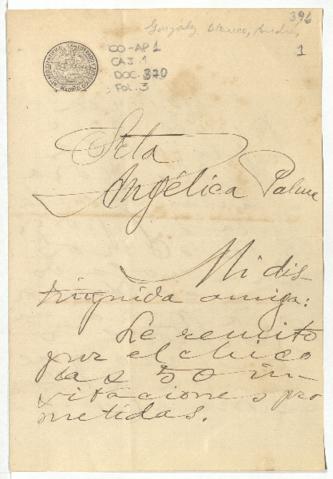 396
González Blanco, Andrés
1
CO-AP1
CAJ. 1
DOC. 370
FOL. 3
Srta
Angélica Palma
Mi dis-
tinguida amiga:
Le remito
por el chico
las 50 in-
vitaciones pro
metidas.